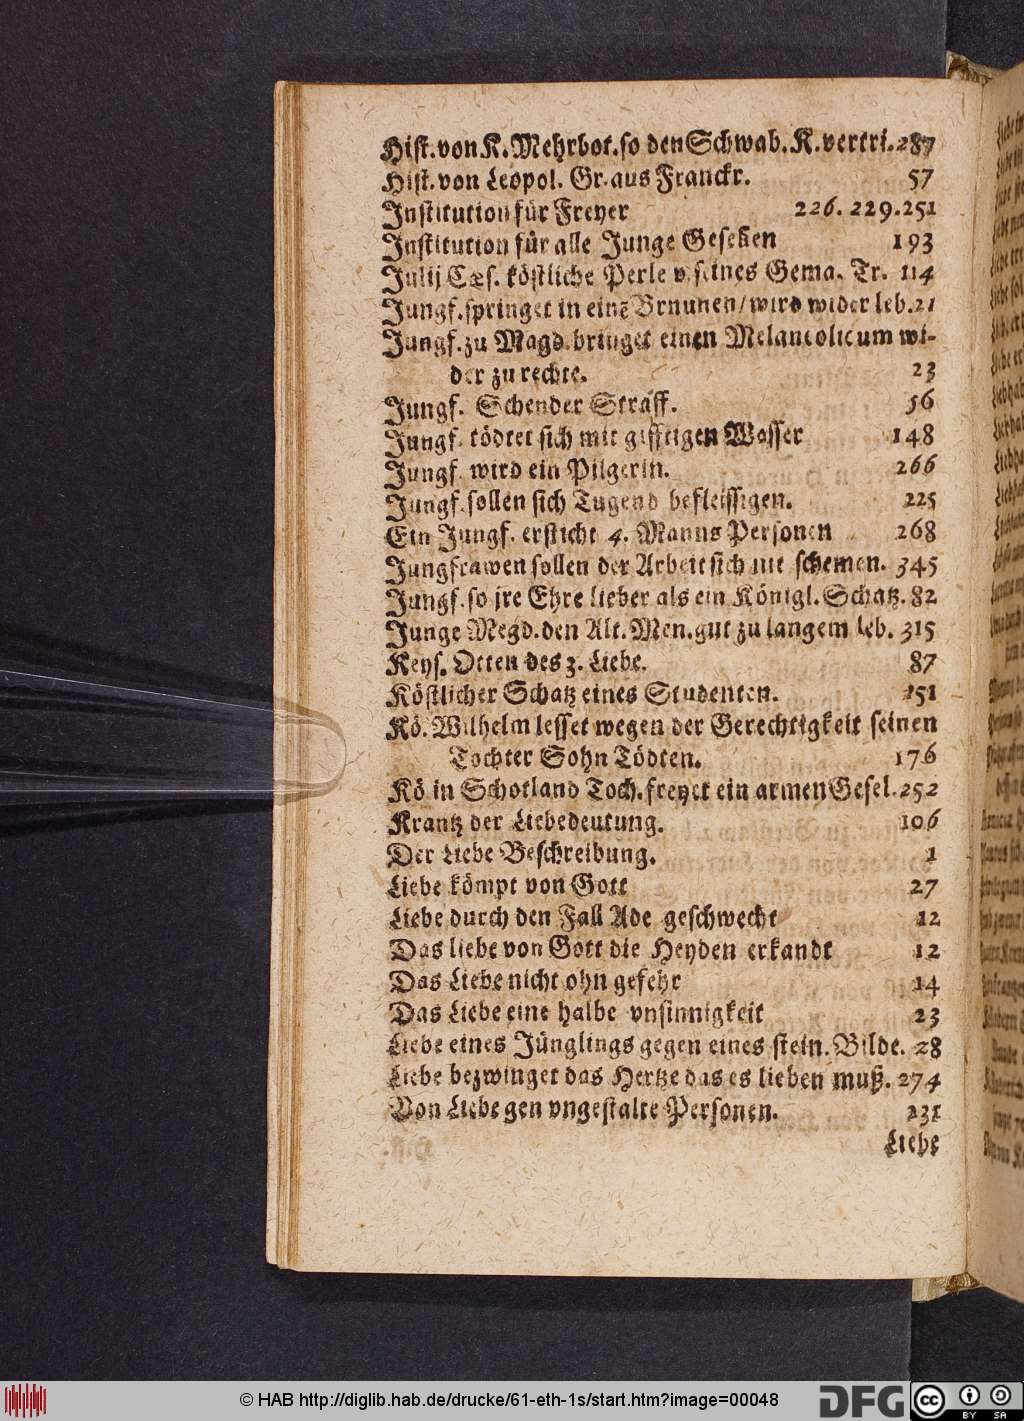 Hist. von K. Mehrbot. so den Schwab. K. vertri. 287
Hist. von Leopol. Gr. aus Franckr. 57
Institution für Freyer 226. 229. 251
Institution für alle Junge Gesellen 193
Julij Cæs. köstliche Perle v. seines Gema. Tr. 114
Jungf. springet in einẽ Brnunen/ wird wider leb. 21
Jungf. zu Magd. bringet einen Melancolicum wi-
der zu rechte. 23
Jungf. Schender Sträff. 56
Jungf. tödtet sich mit gifftigen Wasser 148
Jungf. wird ein Pilgerin. 266
Jungf. sollen sich Tugend befleissigen. 225
Ein Jungf. ersticht 4. Manns Personen 268
Jungfrawen sollen der Arbeit sich nit schemen. 345
Jungf. so jre Ehre lieber als ein Königl. Schatz. 82
Junge Megd. den Alt. Men. gut zu langem leb. 315
Keys. Otten des 3. Liebe. 87
Köstlicher Schatz eines Studenten. 151
Kö. Wilhelm lesset wegen der Gerechtigkeit seinen
Tochter Sohn Tödten. 176
Kö in Schotland Toch. freyet ein armen Gesel. 252
Krantz der Liebe deutung. 106
Der Liebe Beschreibung. 1
Liebe kömpt von Gott 27
Liebe durch den Fall Ade geschwecht 12
Das liebe von Gott die Heyden erkandt 12
Das Liebe nicht ohn gefehr 14
Das Liebe eine halbe vnsinnigkeit 23
Liebe eines Jünglings gegen eines stein. Bilde. 28
Liebe bezwinget das Hertze das es lieben muß. 274
Von Liebe gen vngestalte Personen. 231
Liebe
© HAB http://diglib.hab.de/drucke/61-eth-1s/start.htm?image=00048
DFG
cc BY SA